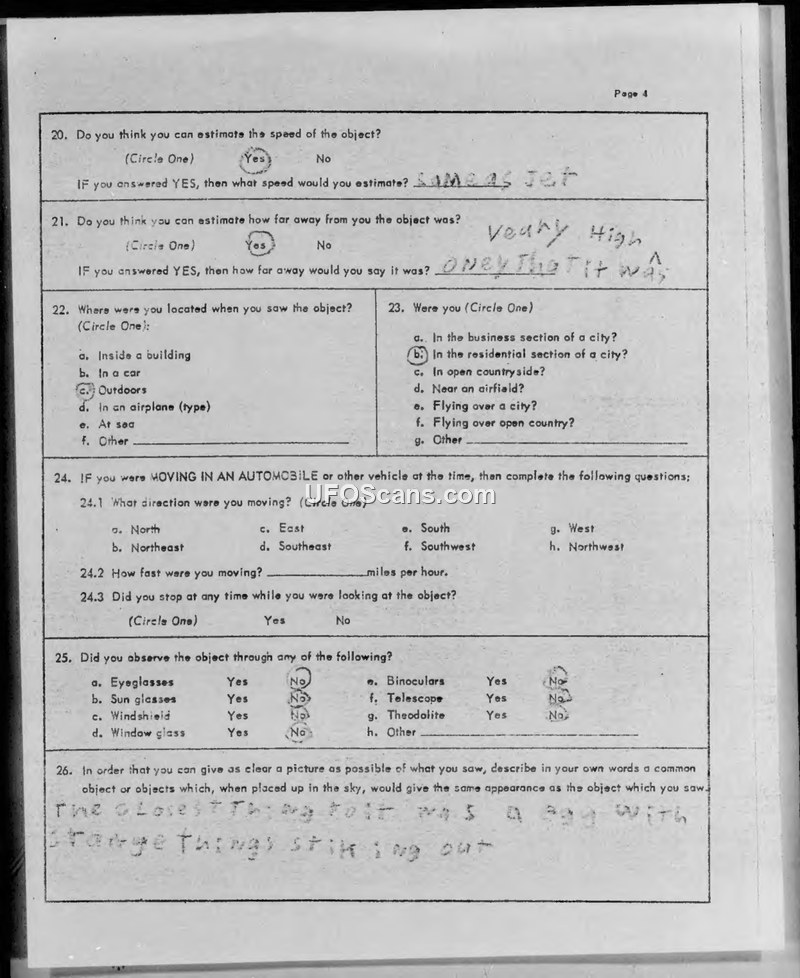 Page 4
20. Do you think you can estimate the speed of the object?
(Circle One) Yes No
IF you answered YES, then what speed would you estimate? SAME AS JET
21. Do you think you can estimate how far away from you the object was?
VeaRy High
(Circle One) Yes No
IF you answered YES, then how far away would you say it was? ONEy ThaT it was
22. Where were you located when you saw the object?
(Circle One):
a. Inside a building
b. In a car
c. Outdoors
d. In an airplane (type)
e. At sea
f. Other
23. Were you (Circle One)
a. In the business section of a city?
b. In the residential section of a city?
c. In open countryside?
d. Near an airfield?
e. Flying over a city?
f. Flying over open country?
g. Other
24. IF you were MOVING IN AN AUTOMOBILE or other vehicle at the time, then complete the following questions;
24.1 What direction were you moving? (Circle One)
UFOScans.com
a. North c. East e. South g. West
b. Northeast d. Southeast f. Southwest h. Northwest
24.2 How fast were you moving? miles per hour.
24.3 Did you stop at any time while you were looking at the object?
(Circle One) Yes No
25. Did you observe the object through any of the following?
a. Eyeglasses Yes No e. Binoculars Yes No
b. Sun glasses Yes No f. Telescope Yes No
c. Windshield Yes No g. Theodolite Yes No
d. Window glass Yes No h. Other
26. In order that you can give as clear a picture as possible of what you saw, describe in your own words a common
object or objects which, when placed up in the sky, would give the same appearance as the object which you saw.
The cLosest Thing to it was a egg with
strange Things stiking out